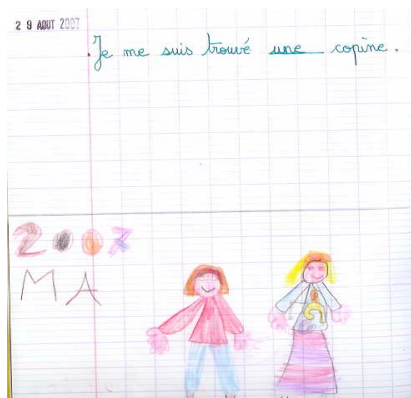 29 AOUT 2007
Je me suis trouvé une copine.
2007
MA